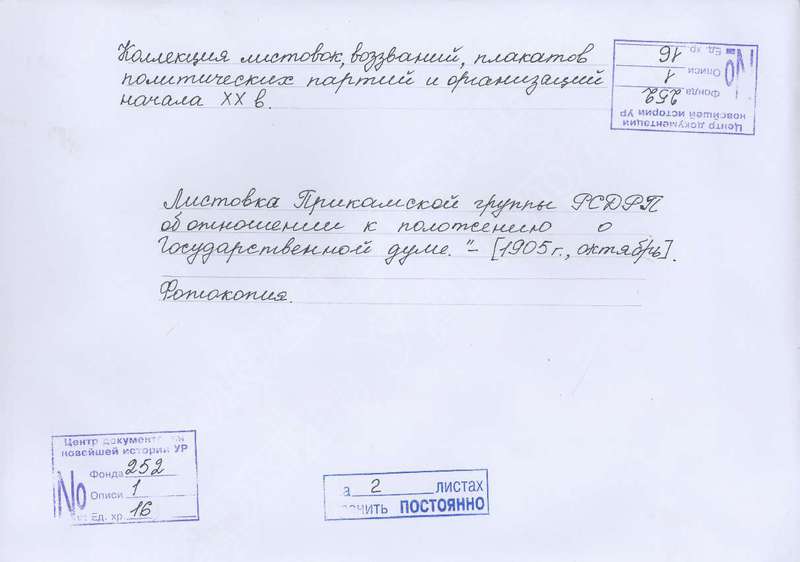 Коллекция листовок, воззваний, плакатов
политических партий и организаций
начала XX в.
Центр документации
новейшей истории УР
№
Фонда 252
Описи 1
Ед. хр. 16
Листовка Прикамской группы РСДРП
об отношении к положению о
Государственной думе. "– [1905 г., октябрь].
Фотокопия.
Центр документ
новейшей истории УР
№
Фонда 252
Описи 1
Ед. хр. 16
а 2 листах
нить ПОСТОЯННО